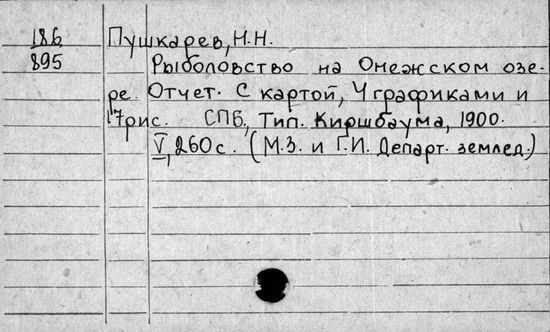 186 Пушкарев, Н.Н.
895 Рыболовство на Онежском озе-
ре. Отчет. С картой, 4 графиками и
17 рис. СПб, Тип. Киршбаума, 1900.
V, 260 с. (М.З. и Г.И. Департ. землед.)